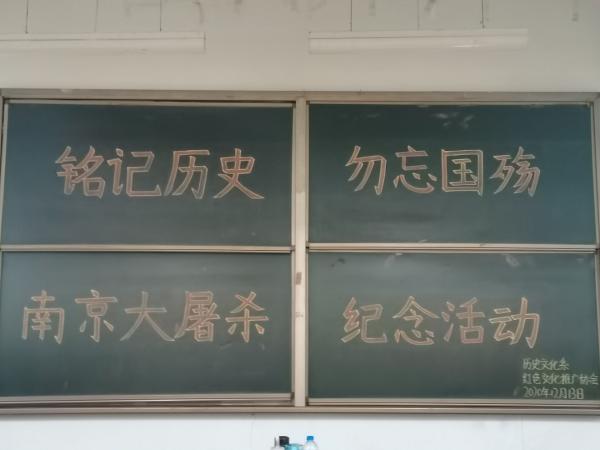 铭记历史 勿忘国殇
南京大屠杀 纪念活动
历史文化系
红色文化推广协会
2020年12月13日